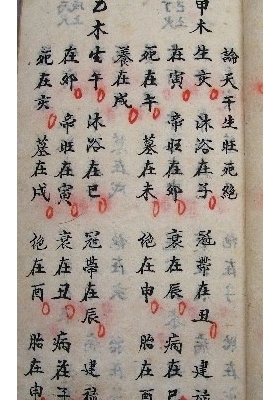 論天干生旺死絶
甲木
生亥 沐浴在子 冠帶在丑 建祿
在寅 帝旺在卯 衰在辰 病在巳
死在午 墓在未 絶在申 胎在酉
養在戌
乙木
生午 沐浴在巳 冠帶在辰 建祿
在卯 帝旺在寅 衰在丑 病在子
死在亥 墓在戌 絶在酉 胎在申